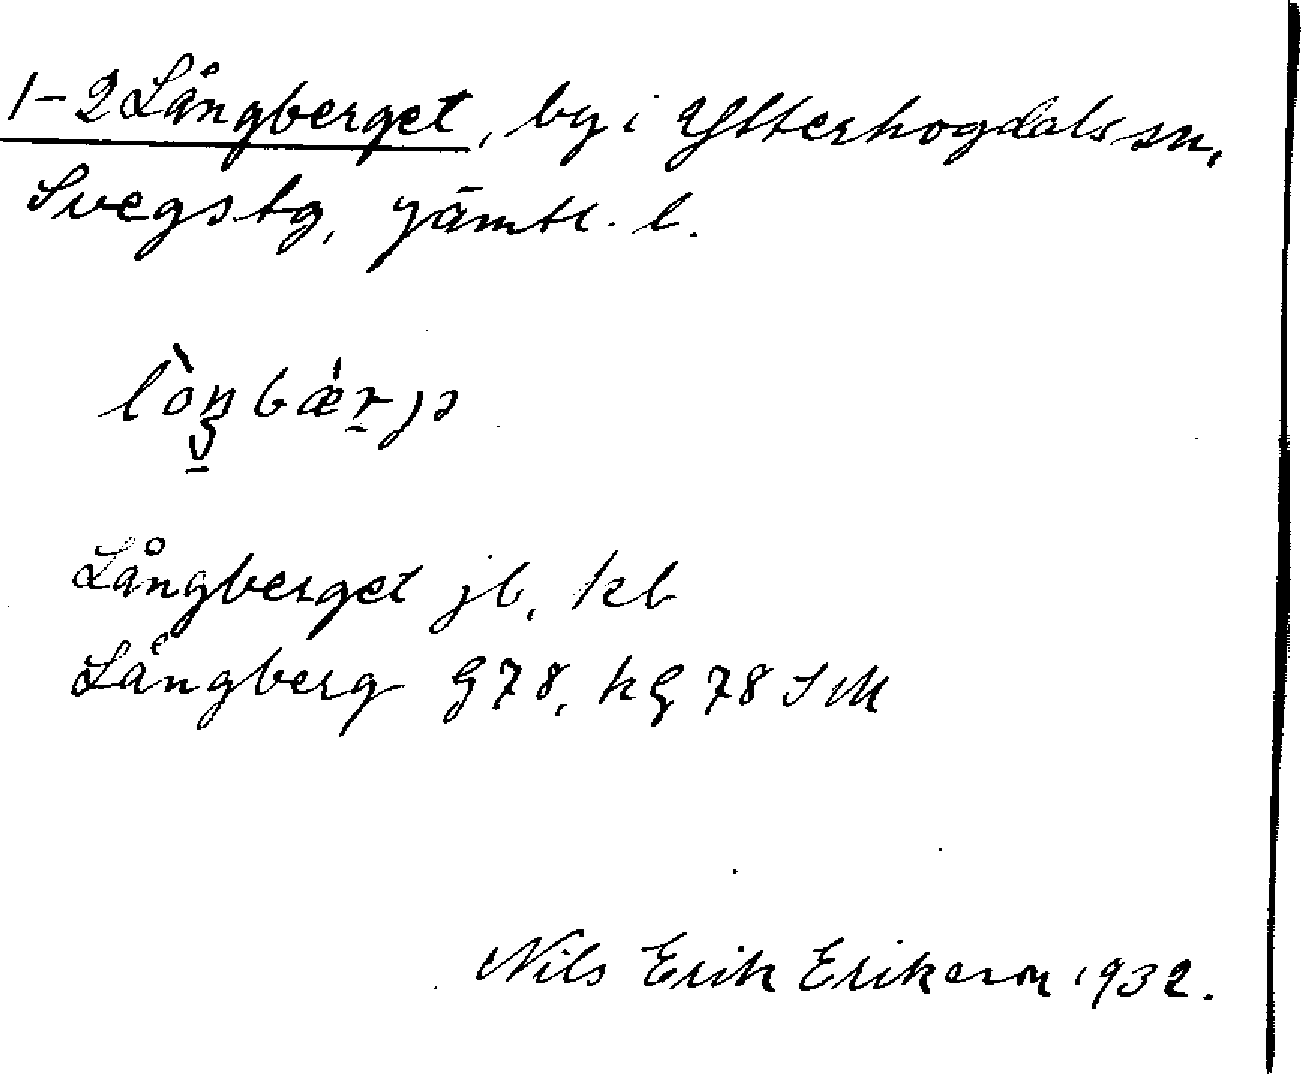 1-2 Långberget, by i Ytterhogdals sn,
Svegs tg, Jämtl. l.
Långberget jb, kb
Långberg G 78, kG 78 SM
Nils Erik Erikson 1932.